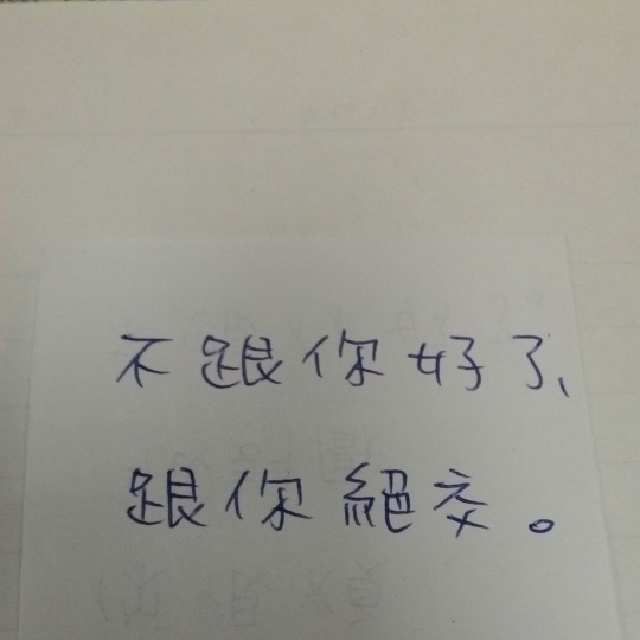 不跟你好了、
跟你絕交。